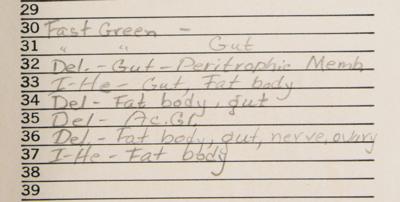 29
30 Fast Green -
31 " " Gut
32 Del. - Gut - Peritrophic Memb
33 I-He - Gut, Fat body
34 Del - Fat body, gut
35 Del - Ac. Gl.
36 Del. - Fat body, gut, nerve, ovary
37 I-He - Fat body
38
39